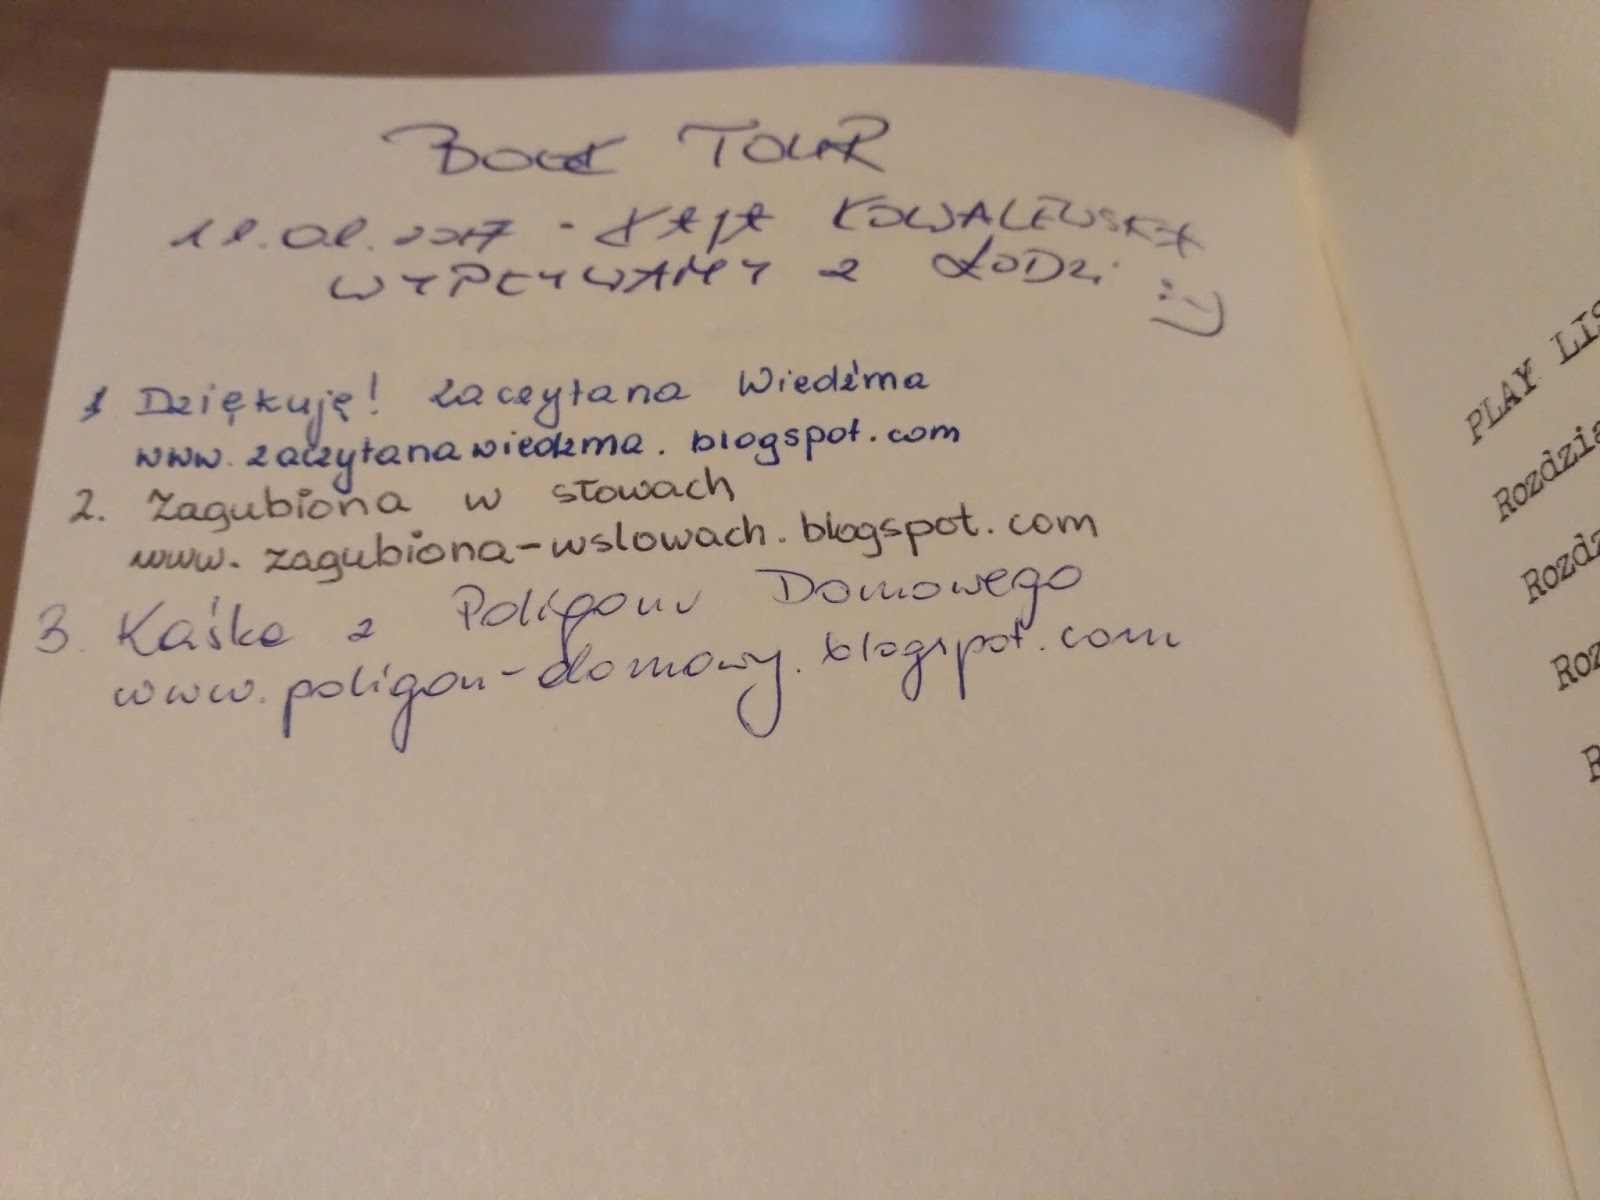 BOOK TOUR
- KAJA KOWALEWSKA
WYPŁYWAMY Z ŁODZI :-)
1 Dziękuję! Zaczytana Wiedźma
www.zaczytanawiedzma.blogspot.com
2. Zagubiona w słowach
www.zagubiona-wslowach.blogspot.com
3. Kaśka z Poligonu Domowego
www.poligon-domowy.blogspot.com
PLAY LIS
Rozdzia
Rozdz
Roz
R